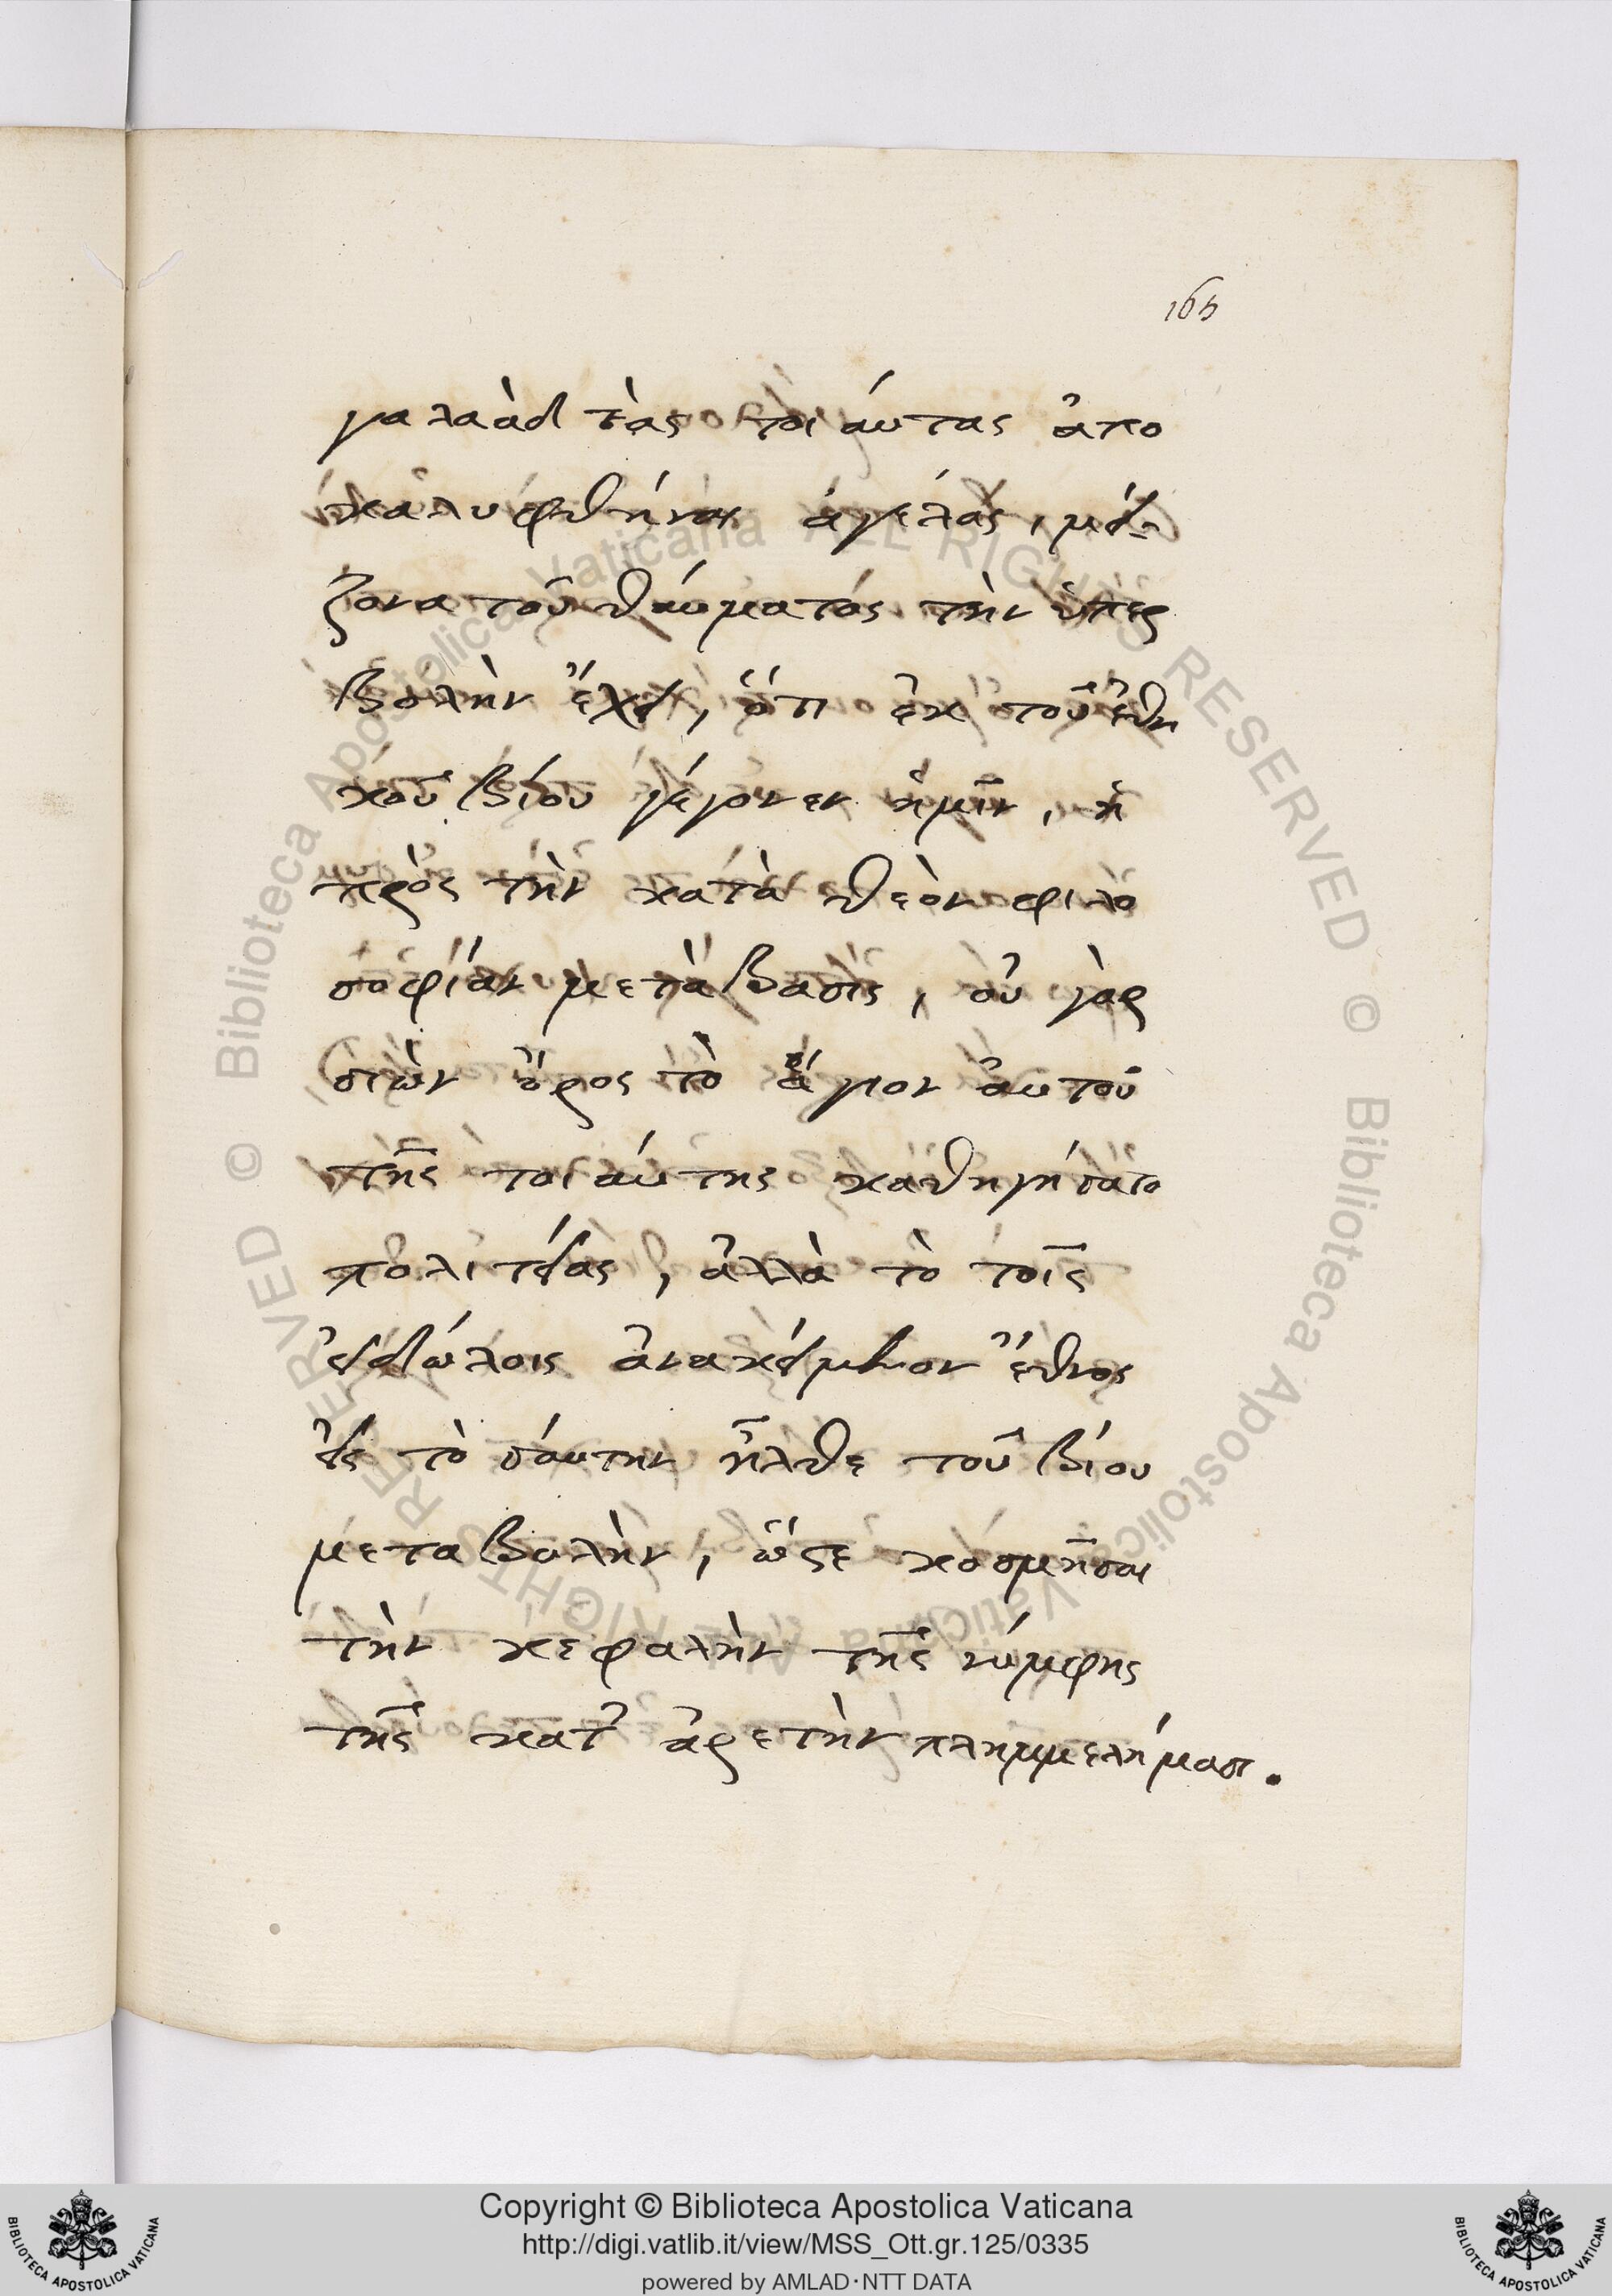 165
γαλαὰδ τὰς τοιάυτας ἀπο
καλυφθήναι ἀγέλας, μεί-
ζονα τοῦ θάυματος τὴν ὑπερ
βολὴν ἔχει, ὅτι ἐκ τοῦ ἐθνι
κοῦ βίου γέγονεν ἡμῖν, ἡ
πρὸς τὴν κατὰ θεὸν φιλο
σοφίαν μετὰβασις, οὐ γὰρ
σιὼν ὄρος τὸ ἅγιον ἀυτοῦ
τῆς τοιάυτης καθηγήσατο
πολιτείας, ἀλλὰ τὸ τοῖς
εἰδώλοις ἀνακείμενον ἔθνος
εἰς τὸ σάυτην ἦλθε τοῦ βίου
μεταβολὴν, ὥστε κοσμῆσαι
τὴν κεφαλὴν τῆς νύμφης
τῆς κατ' ἀρετὴν πλημμελήμασι.
Copyright © Biblioteca Apostolica Vaticana
http://digi.vatlib.it/view/MSS_Ott.gr.125/0335
powered by AMLAD·NTT DATA
BIBLIOTECA APOSTOLICA VATICANA
BIBLIOTECA APOSTOLICA VATICANA
© Biblioteca Apostolica Vaticana ALL RIGHTS RESERVED
© Biblioteca Apostolica Vaticana ALL RIGHTS RESERVED